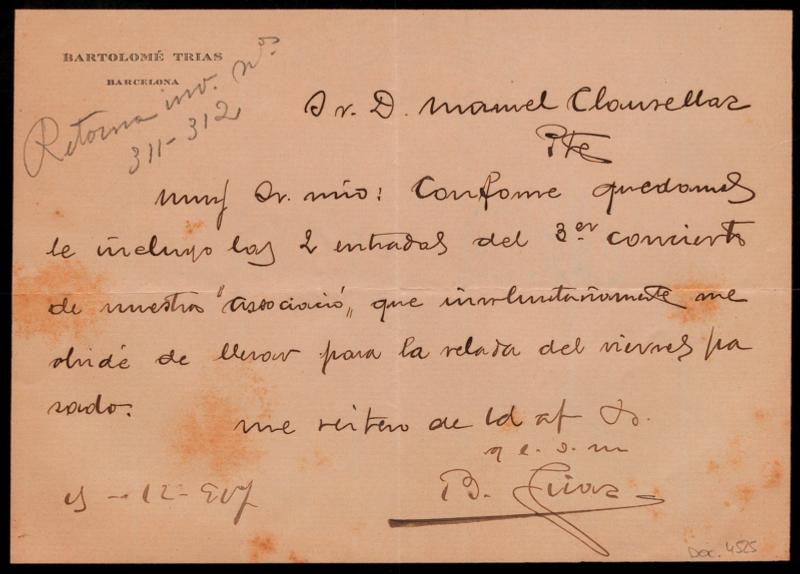 BARTOLOMÉ TRIAS
BARCELONA
Retorna inv. nos.
311-312
Sr. D. Manuel Clausellas
Pte
Muy Sr. mio: Conforme quedamos
le incluyo las 2 entradas del 3er concierto
de nuestra "Associació", que involuntariamente me
olvidé de llevar para la velada del viernes pa
sado.
Me reitero de Vd af S.
q e. s. m
B. Trias
-12-907
Doc. 4525